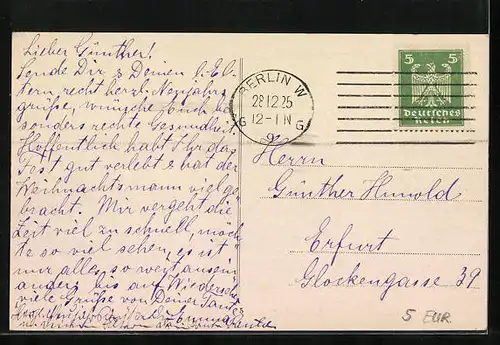 Lieber Günther!
Sende Dir & Deinen l. El-
tern, recht herzl. Neujahrs
grüße, wünsche Euch be-
sonders rechte Gesundheit.
Hoffentlich habt Ihr das
Fest gut verlebt & hat der
Weihnachtsmann viel ge-
bracht. Mir vergeht die
Zeit viel zu schnell, möch-
te so viel sehen, es ist
mir alles so weit ausein
ander, bis auf Wiedersehn
viele Grüße von Deiner Tante
BERLIN W
28.12.25
12-1 N
G G
9
5 5
Deutsches
Reich
Herrn
Günther Hunold
Erfurt
Glockengasse 39
5 EUR